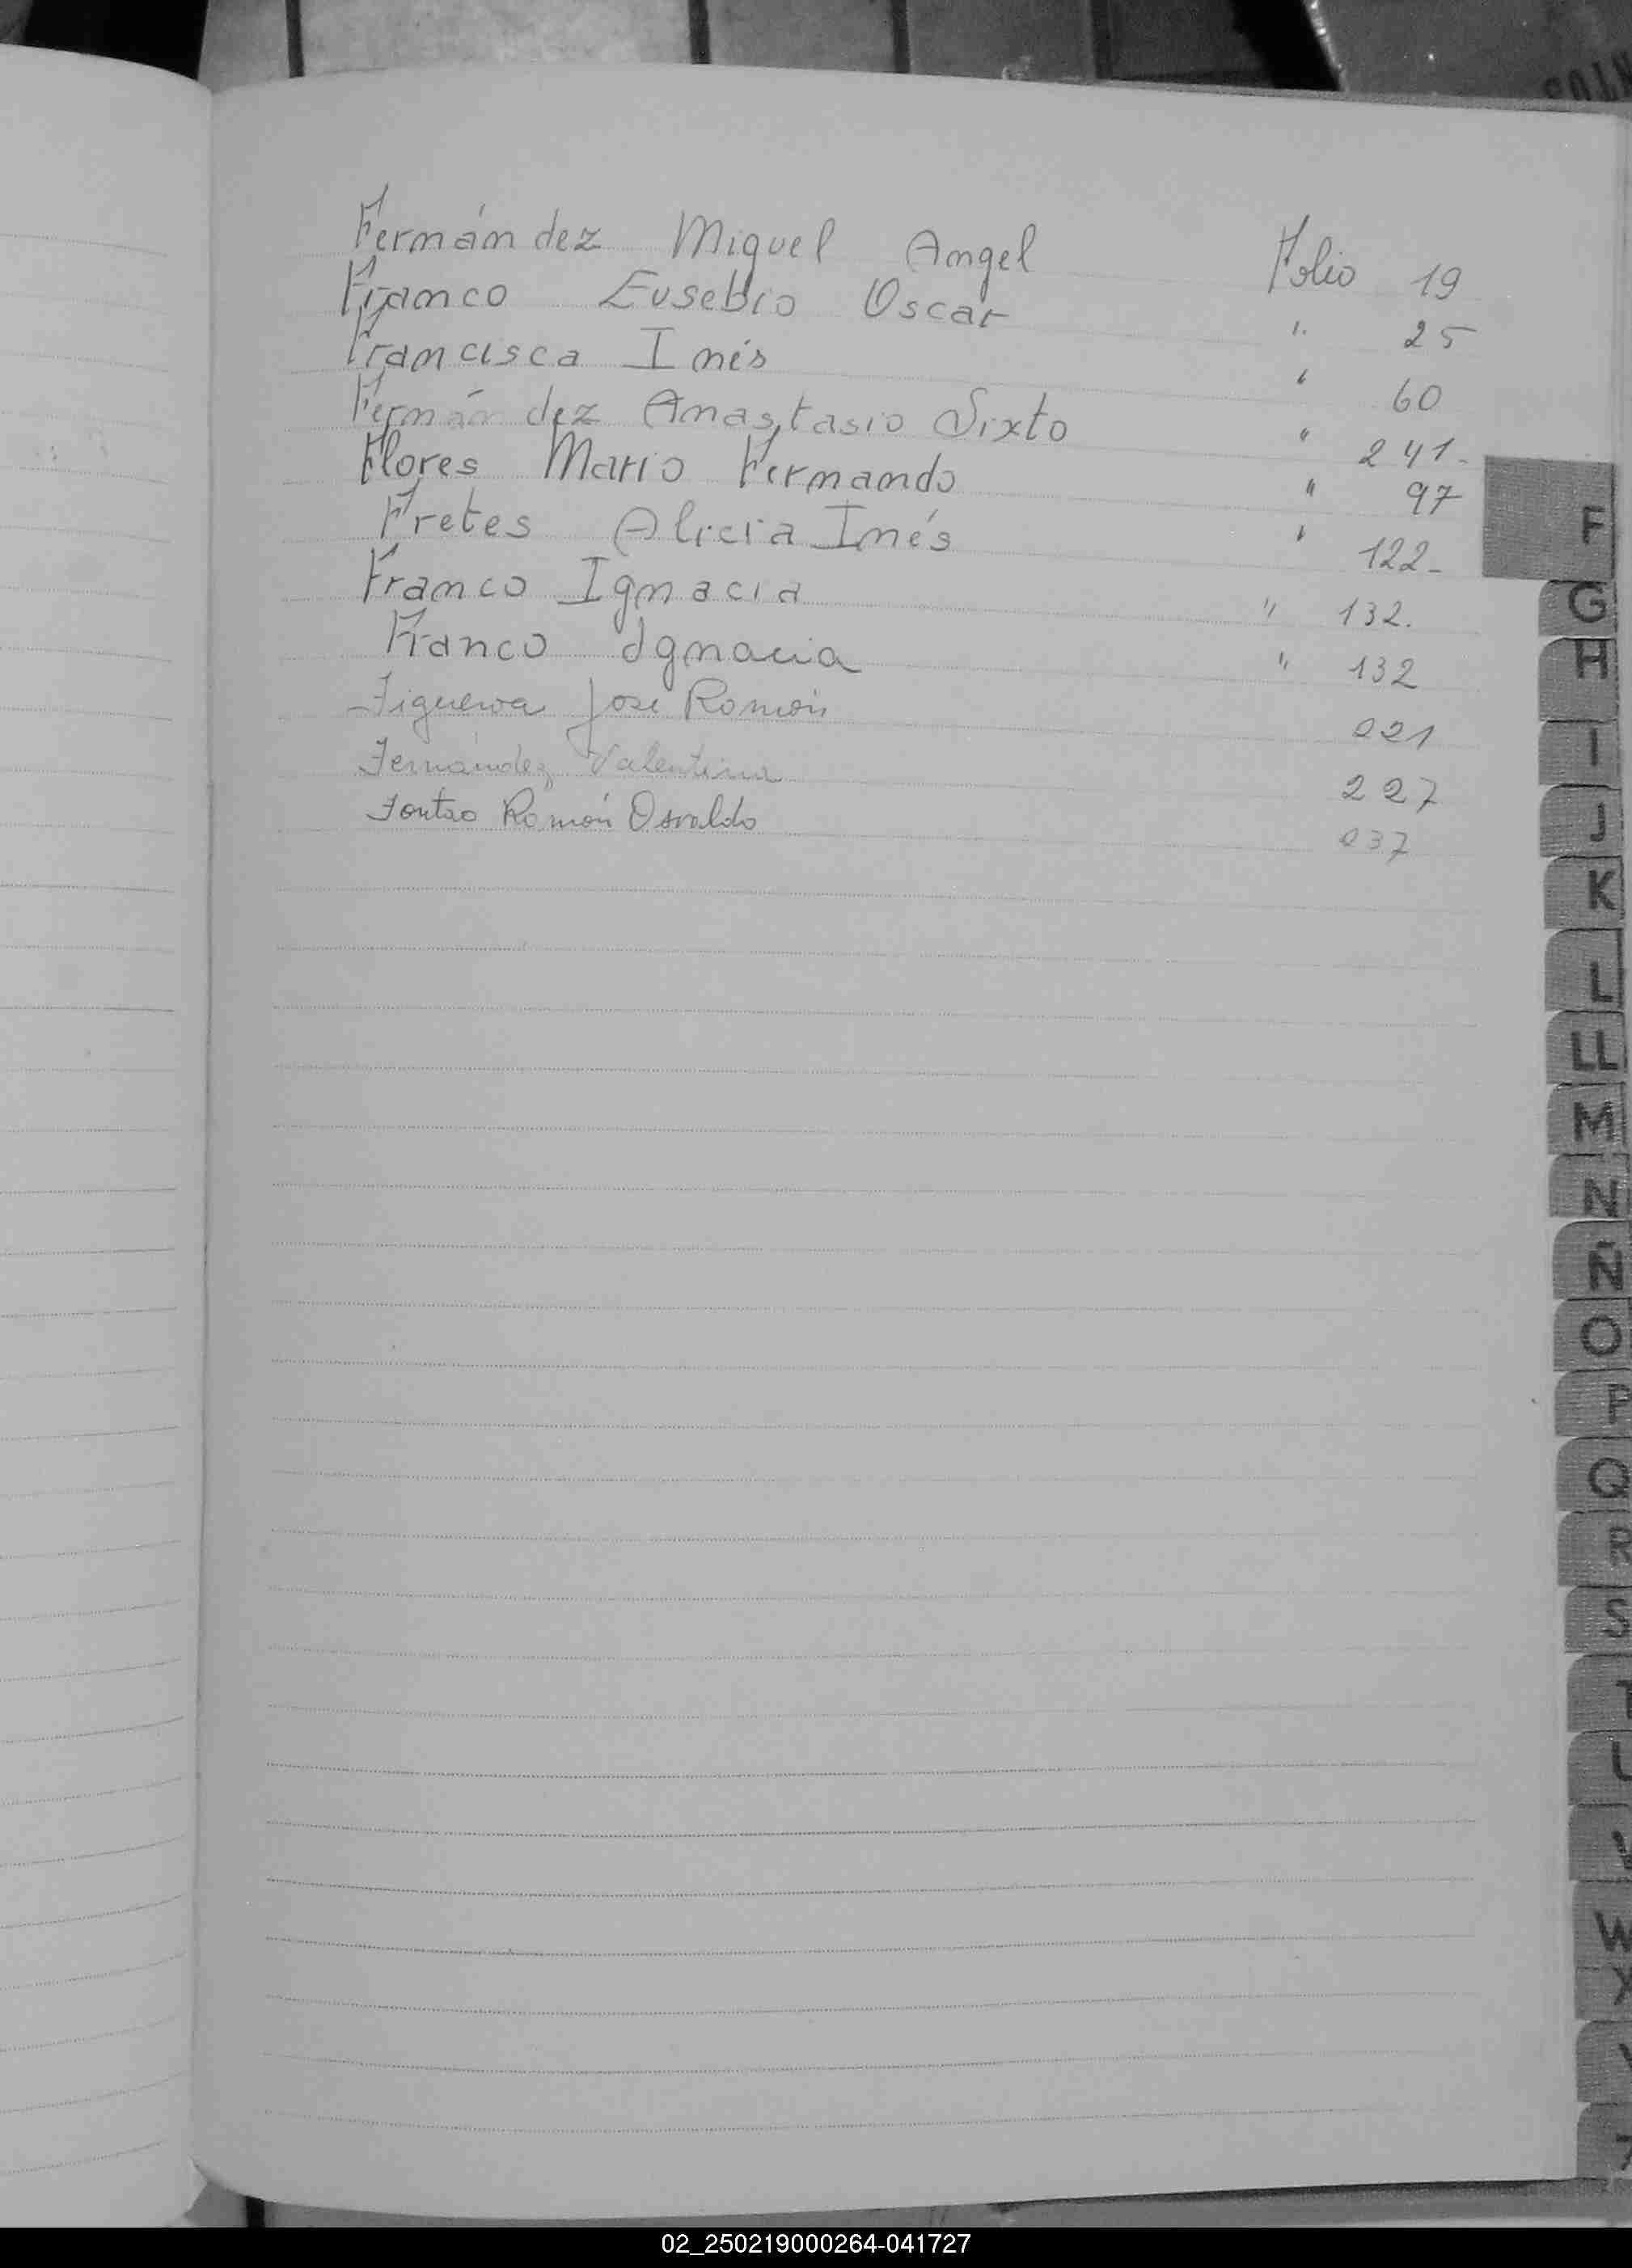 Fernández Miguel Angel Folio 19
Franco Eusebio Oscar " 25
Francisca Inés " 60
Fernández Anastasio Sixto " 241-
Flores Mario Fernando " 97
Fretes Alicia Inés " 122-
Franco Ignacia " 132.
Franco Ignacia " 132
Figueroa José Ramón 221
Fernández Valentina 227
Fontao Ramón Osvaldo 237
F
G
H
I
J
K
L
LL
M
N
Ñ
O
P
Q
R
S
T
U
V
W
X
Y
Z
02_250219000264-041727